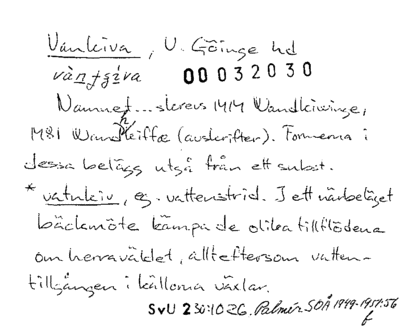 Vånkiva, V. Göinge hd
vån+gíva 00032030
Namnet ... skrevs 1414 Wandkiwinge,
1481 Wandkiffæ (avskrifter). Formerna i
dessa belägg utgå från ett subst.
* vatnkiv, eg. vattenstrid. I ett närbeläget
bäckmöte kämpa de olika tillflödena
om herraväldet, allteftersom vatten-
tillgången i källorna växlar.
SvU 230:1026. Palmér SOÅ 1949-1951:56
f